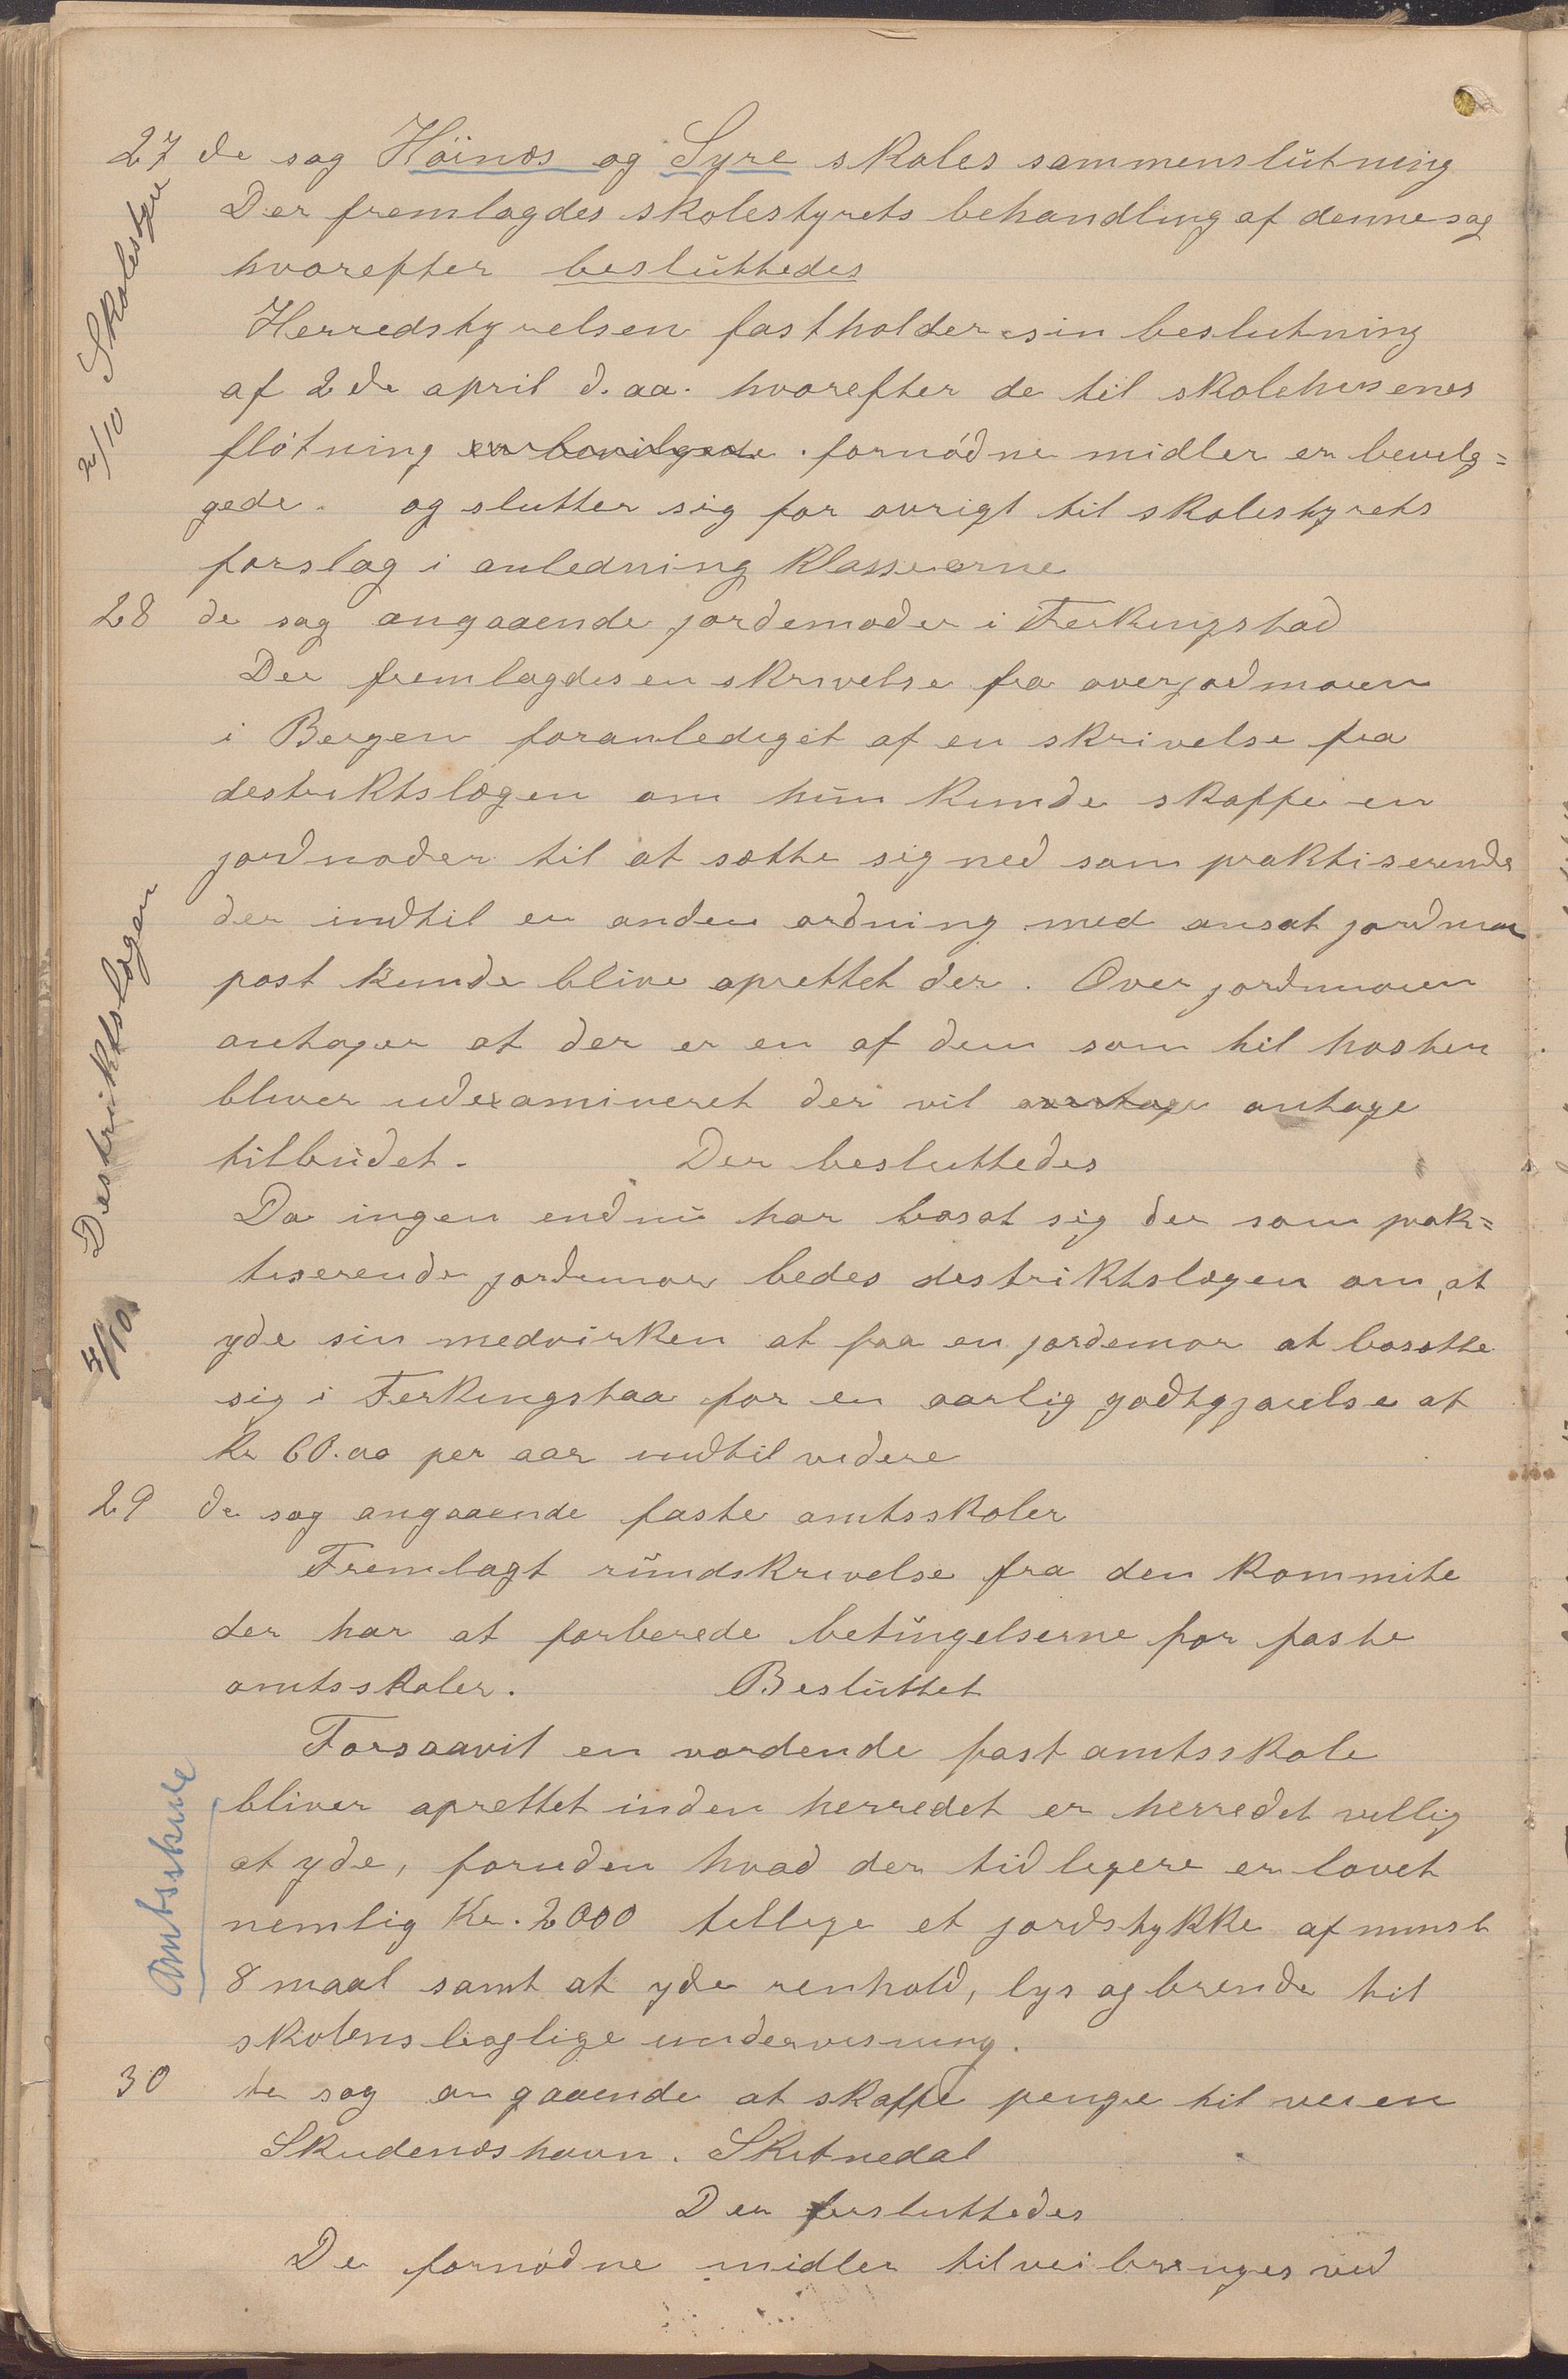 27 de sag Höinæs og Syre skoles sammenslutning
Der fremlagdes skolestyrets behandling af denne sag
hvorefter besluttedes
Herredstyrelsen fastholder sin beslutning
af 2de april d. aa. hvorefter de til skolehusenes
fløtning er bevilgede fornødne midler er bevilg=
gede. og slutter sig for øvrigt til skolestyrets
forslag i anledning klasserne
2/10 Skolestyre
28 de sag angaaende jordemoder i Ferkingstad
Der fremlagdes en skrivelse fra overjordmoren
i Bergen foranlediget af en skrivelse fra
destriktslægen om hun kunde skaffe en
jordmoder til at sætte sig ned som praktiserende
der indtil en anden ordning med ansat jordmor
post kunde blive oprettet der. Over jordmoren
antager at der er en af dem som til høsten
bliver udexamineret der vil overtage antage
tilbudet. Der besluttedes
Da ingen endnu har bosat sig der som prak=
tiserende jordemor bedes destriktslægen om, at
yde sin medvirken at faa en jordemor at bosætte
sig i Ferkingstaa for en aarlig godtgjørelse at
kr 60.00 per aar indtil videre
4/10 Destriktslægen
29 de sag angaaende faste amtsskoler
Fremlagt rundskrivelse fra den kommite
der har at forberede betingelserne for faste
amtsskoler. Besluttet
Forsaavit en vordende fast amtsskole
bliver oprettet inden herredet er herredet villig
at yde, foruden hvad der tidligere er lovet
nemlig Kr. 2000 tillige et jordstykke af minst
8 maal samt at yde renhold, lys og brende til
skolens boglige undervisning.
Amtsskule
30 te sag angaaende at skaffe penge til veien
Skudenæshavn. Skitnedal
Der besluttedes
De fornødne midler tilveibringes ved